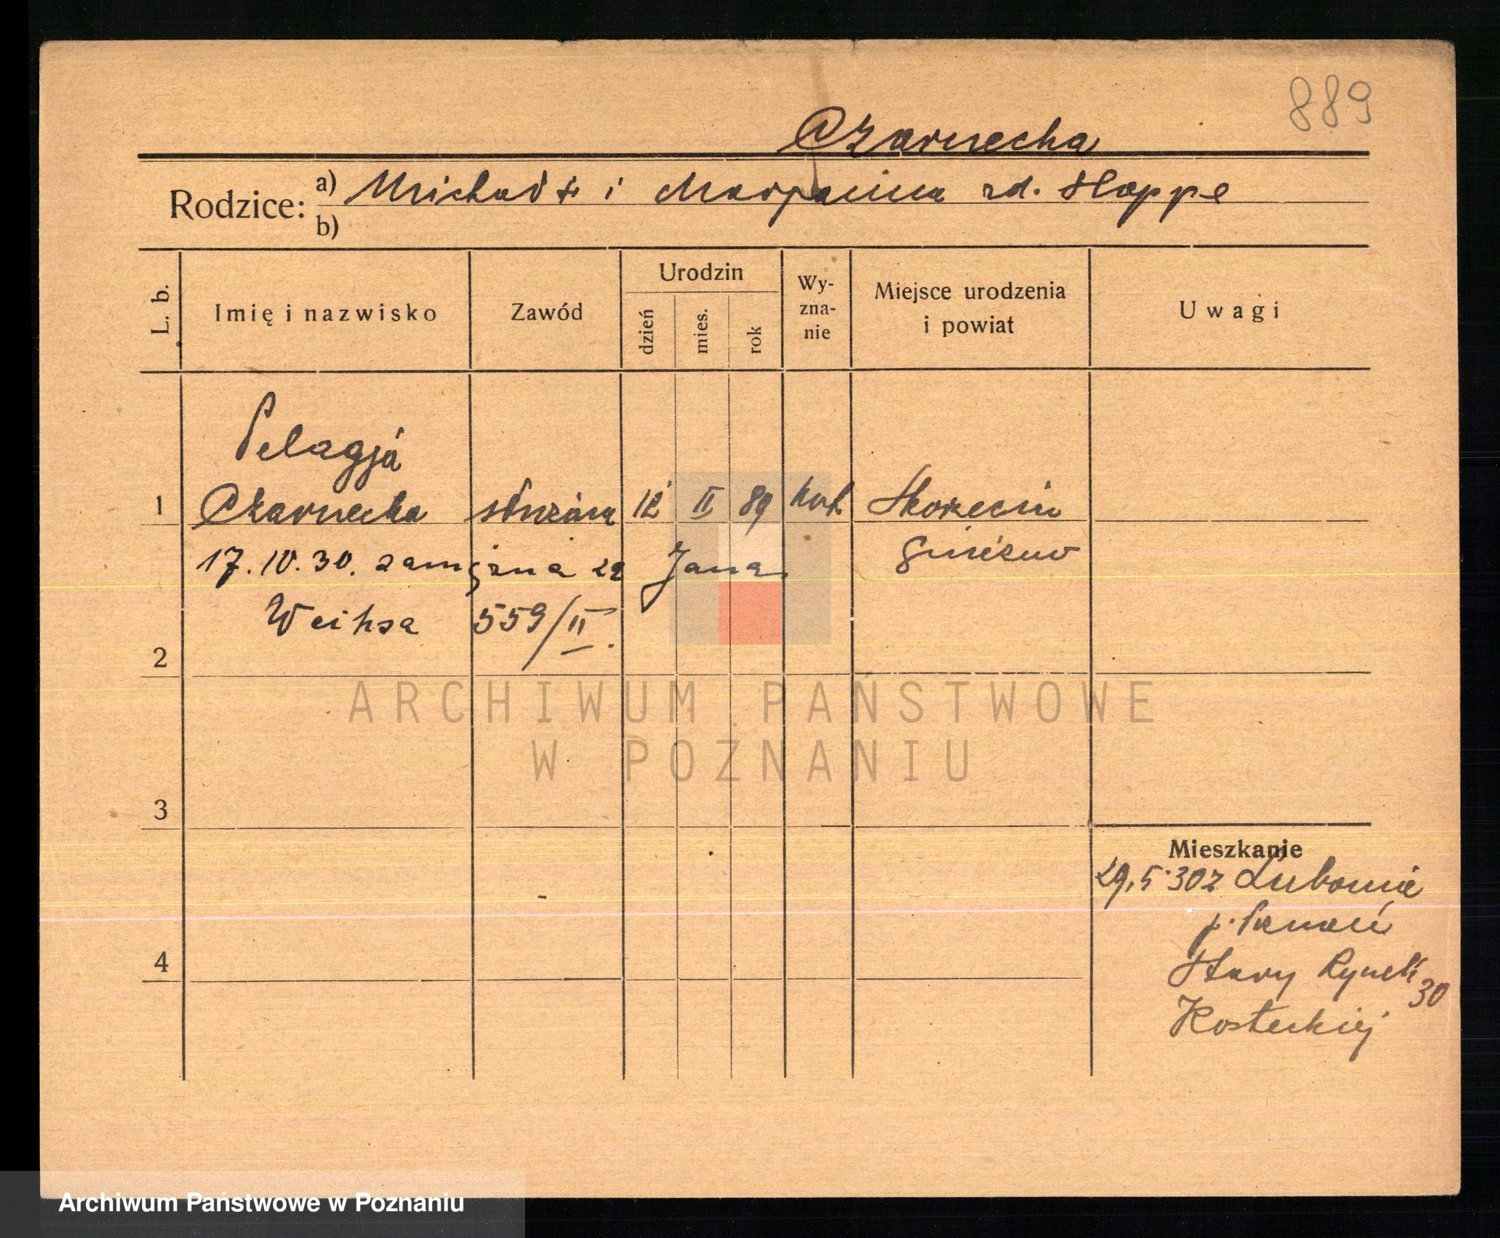 889
Czarnecka
Rodzice: a) Michał + i Marjanna zd. Hoppe
b)
L. b. Imię i nazwisko Zawód Urodzin dzień mies. rok Wy-zna-nie Miejsce urodzenia i powiat Uwagi
Pelagja
1 Czarnecka służąca 12 II 89 kat. Skorzęcin
17.10.30. zamężna za Jana Gniezno
Weihsa 559/II.
2
ARCHIWUM PAŃSTWOWE
W POZNANIU
3
Mieszkanie
29.5.30 z Lubonia
p. Poznań
4 Stary Rynek 30
Kosteckiej
Archiwum Państwowe w Poznaniu